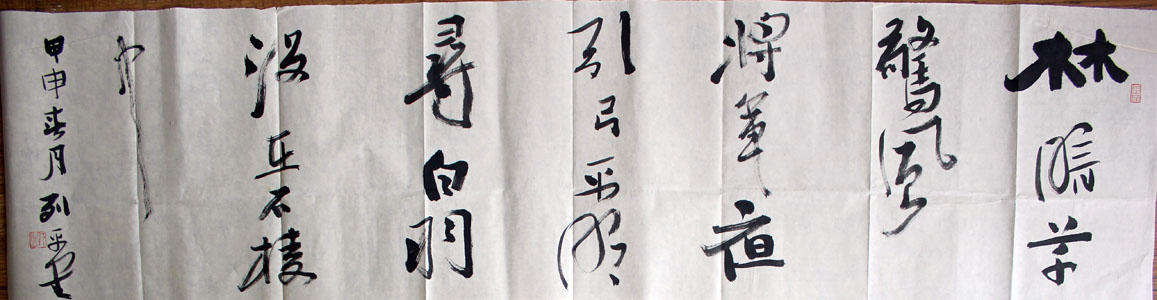 林暗草
驚風
將軍夜
引弓平明
尋白羽
没在石棱
中
甲申春月